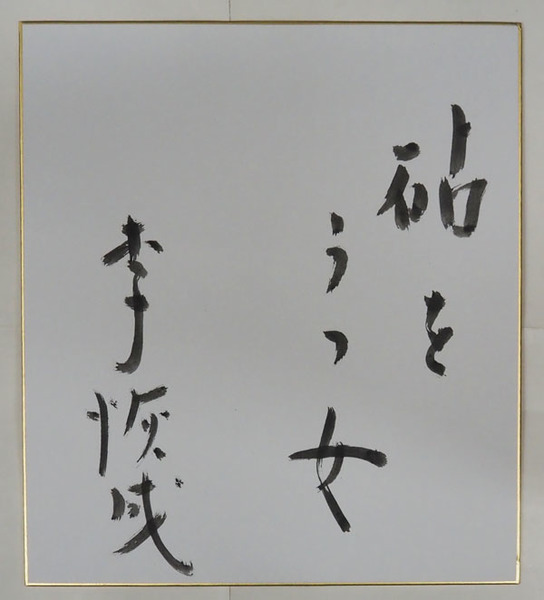 砧を
うつ女
李恢成